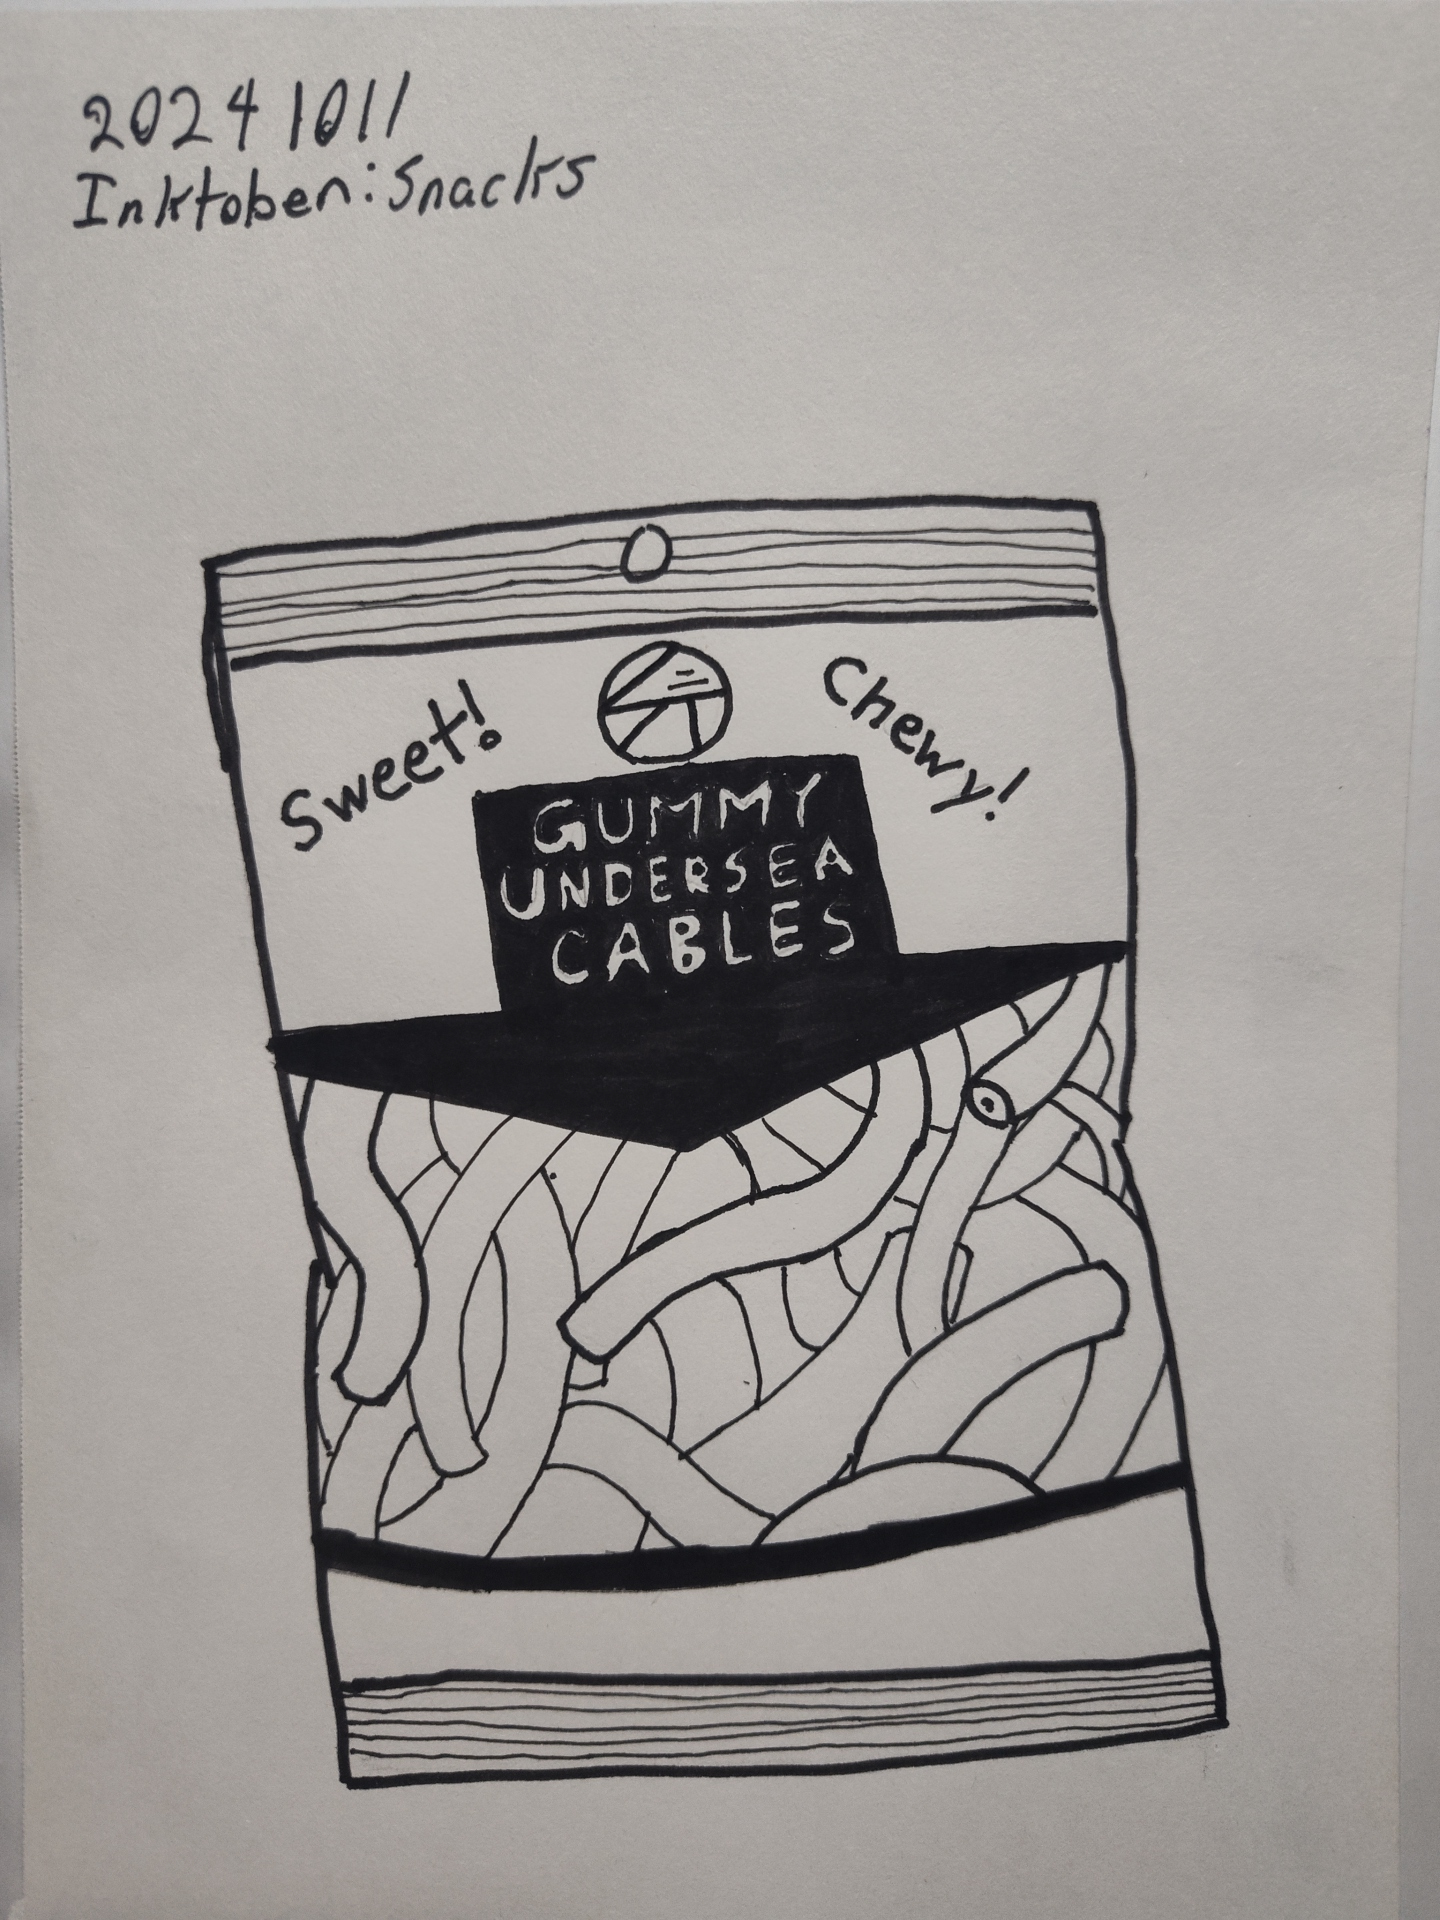 20241011
Inktober: Snacks
Sweet!
Chewy!
GUMMY
UNDERSEA
CABLES